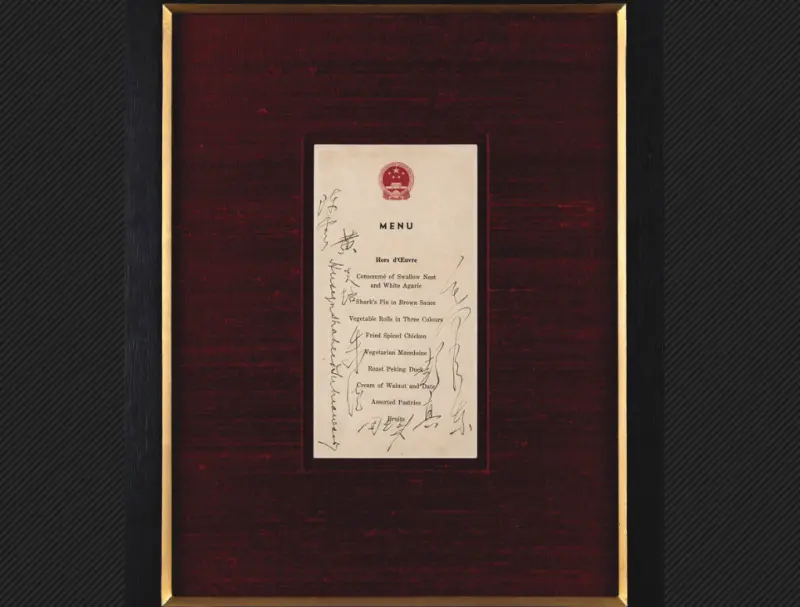 MENU
Hors d'Œuvre
Consommé of Swallow Nest
and White Agaric
Shark's Fin in Brown Sauce
Vegetable Rolls in Three Colours
Fried Spiced Chicken
Vegetarian Macedoine
Roast Peking Duck
Cream of Walnut and Date
Assorted Pastries
Fruits
Huseyn Shaheed Suhrawardy
毛泽东
周恩来